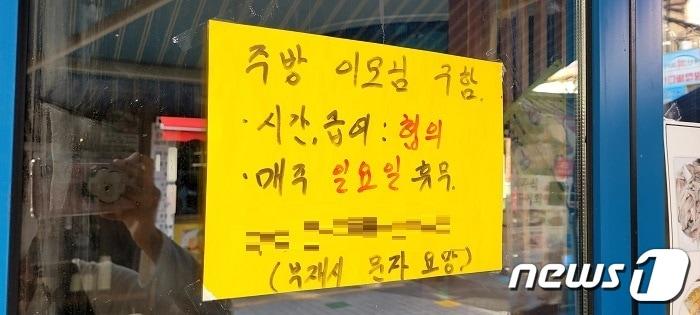 주방 이모님 구함.
· 시간, 급여 : 협의
· 매주 일요일 휴무.
(부재시 문자 요망.)
news1